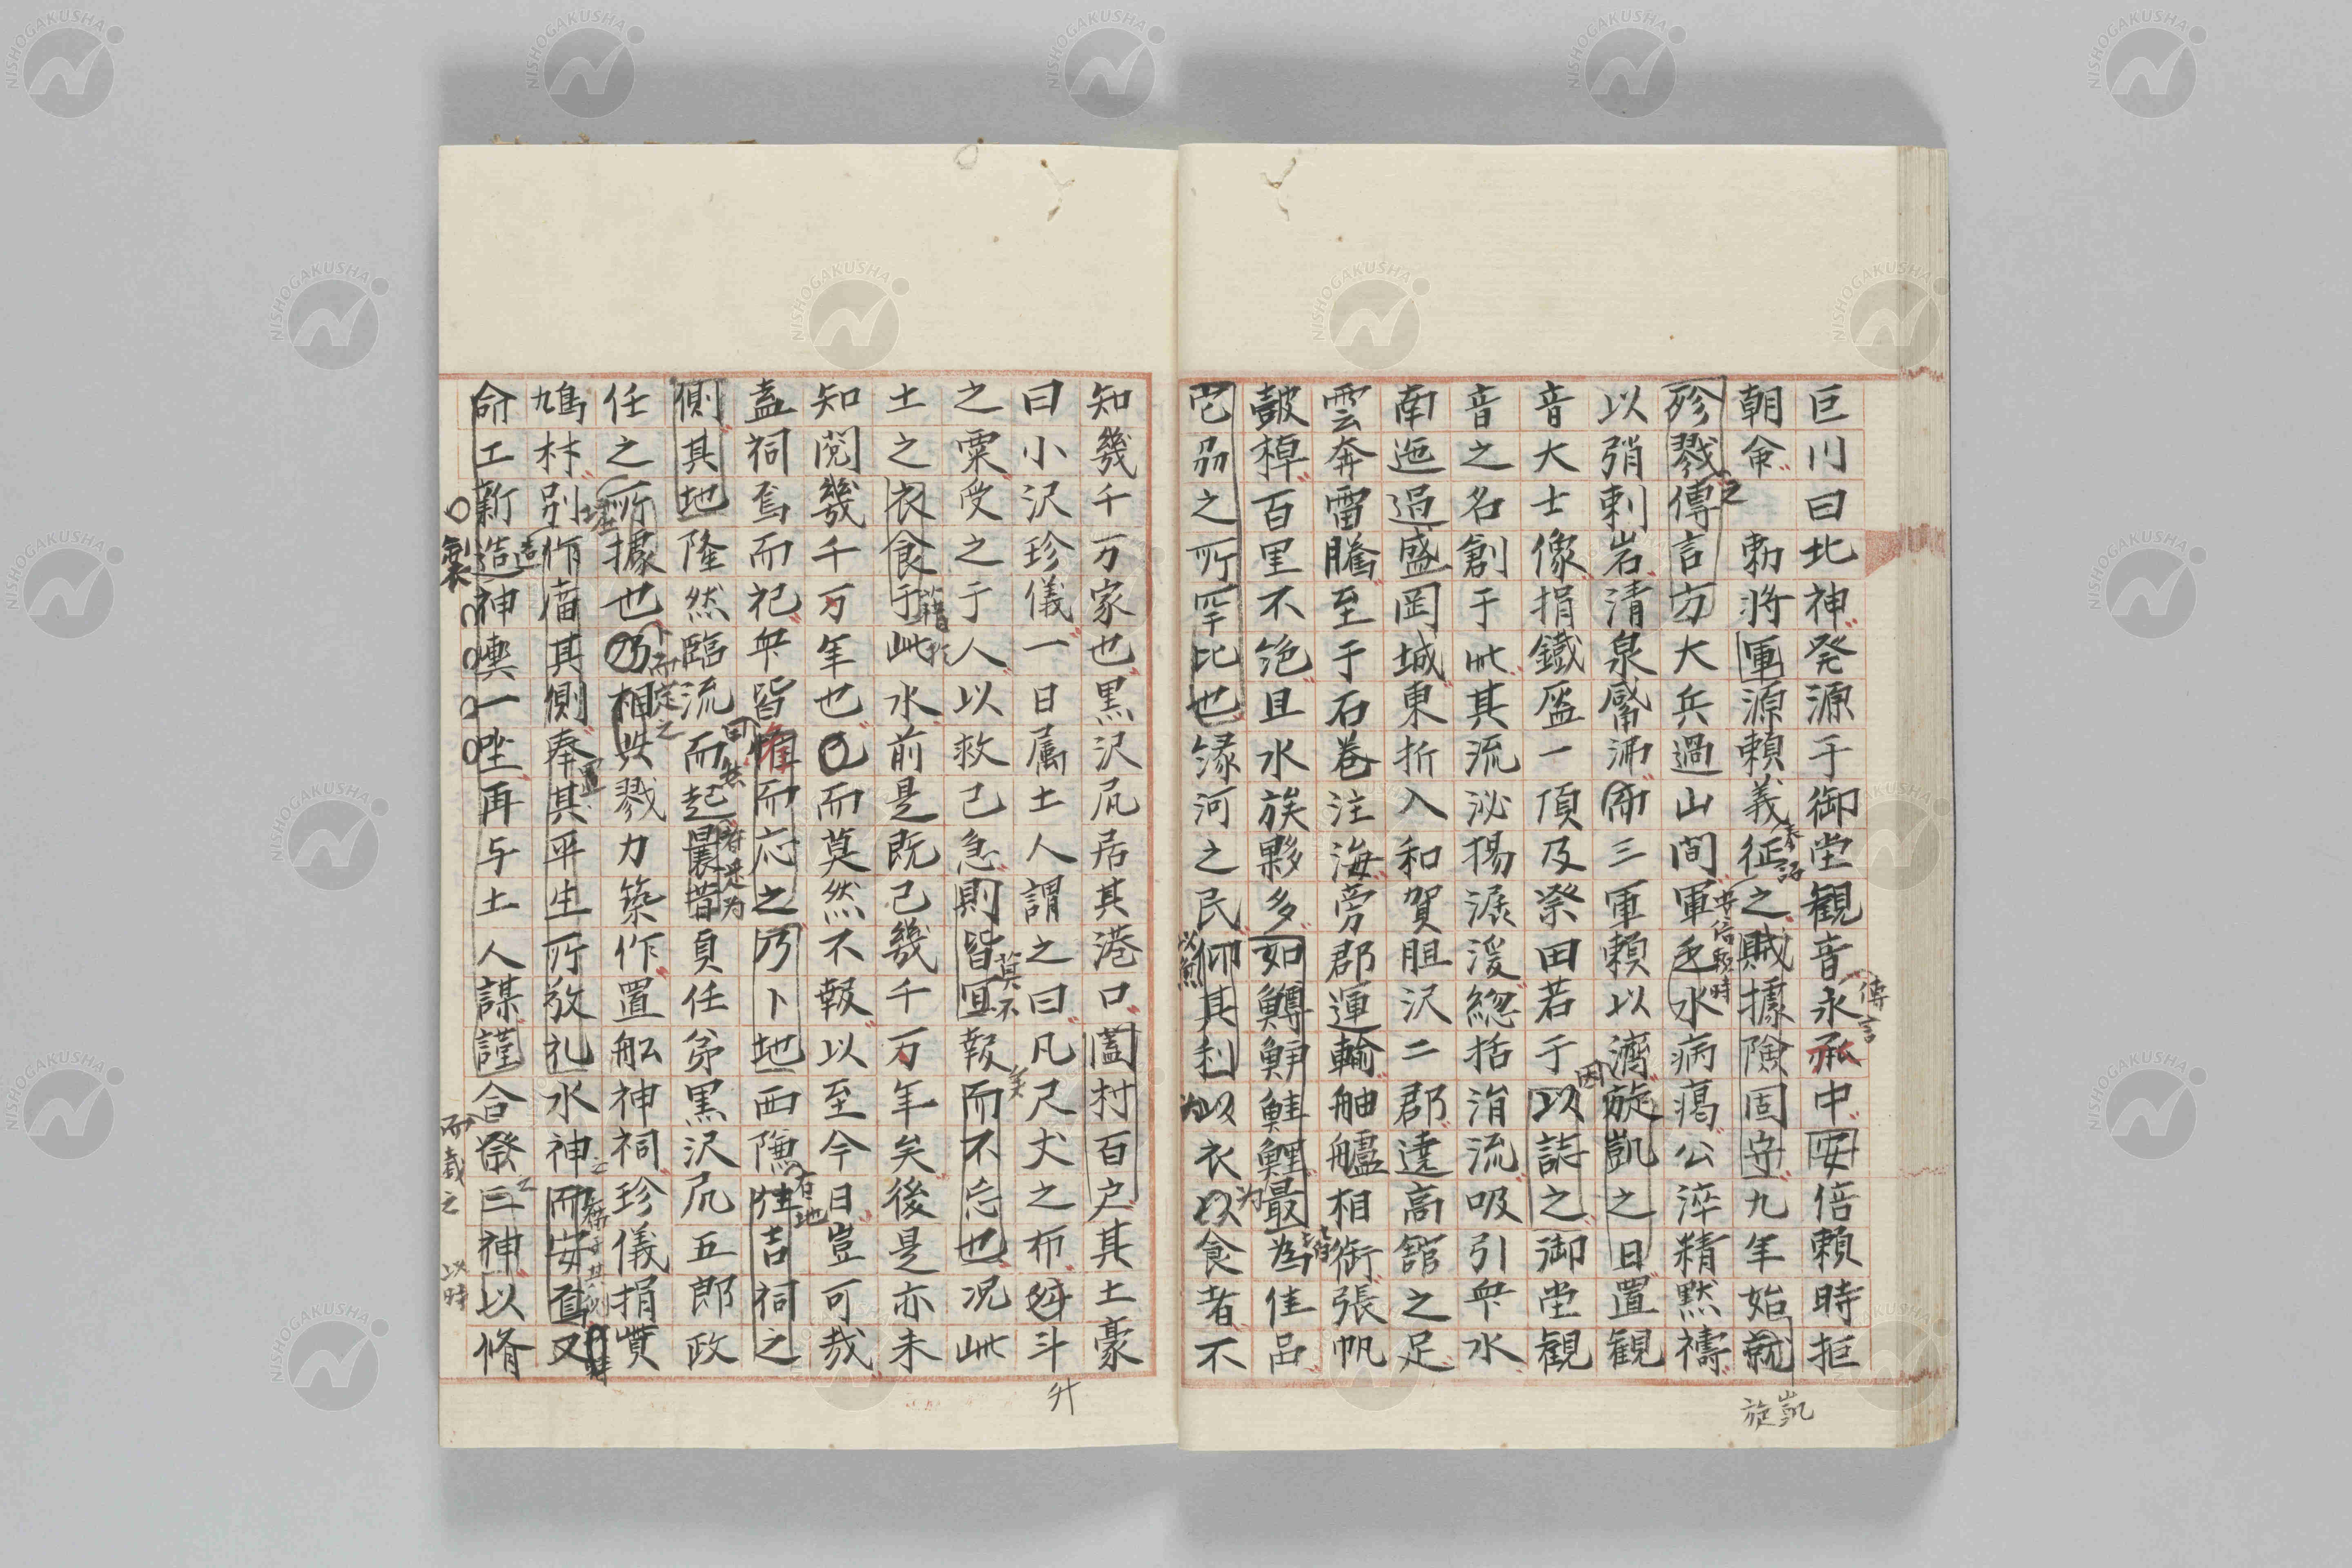 巨川曰北神発源于御堂観音永承中安倍頼時拒
傳言
朝命 勅将軍源頼義征之賊據険固守九年始就
奉詔
凱旋
殄戮傳言方大兵過山間軍乏水病瘍公淬精黙禱
之
安倍頼時
以弰剌岩清泉觱沸而三軍頼以濟旋凱之日置観
因
音大士像捐鐵盔一頂及祭田若于以誌之御堂観
音之名創于此其流泌揚潺湲緫括涓流吸引衆水
南迤過盛岡城東折入和賀胆沢二郡達高舘之足
雲奔雷騰至于石巻注海旁郡運輸舳艫相銜張帆
鼓棹百里不絶且水族夥多如鱒鮃鮭鯉最為佳品
它刕之所罕比也縁河之民仰其利以衣以食者不
知幾千万家也黒沢尻居其港口蓋村百戸其土豪
曰小沢珍儀一日属土人謂之曰凡尺丈之布斗
升
之粟受之于人以救己急則皆宜報而不忘也况此
莫不
土之衣食于此水前是既已幾千万年矣後是亦未
知閲幾千万年也而莫然不報以至今日豈可哉
盍祠焉而祀衆皆惟而応之乃卜地西隒住吉祠之
側其地隆然臨流而起曩昔貞任弟黒沢尻五郎政
任之所據也乃相共戮力築作置舩神祠珍儀捐貲
而定之
鳩材別作庿其側奉其平生所敬礼水神而安置又
造
命工新造神輿一坐再与土人謀謹合祭三神以脩
製
而蔵之
以時